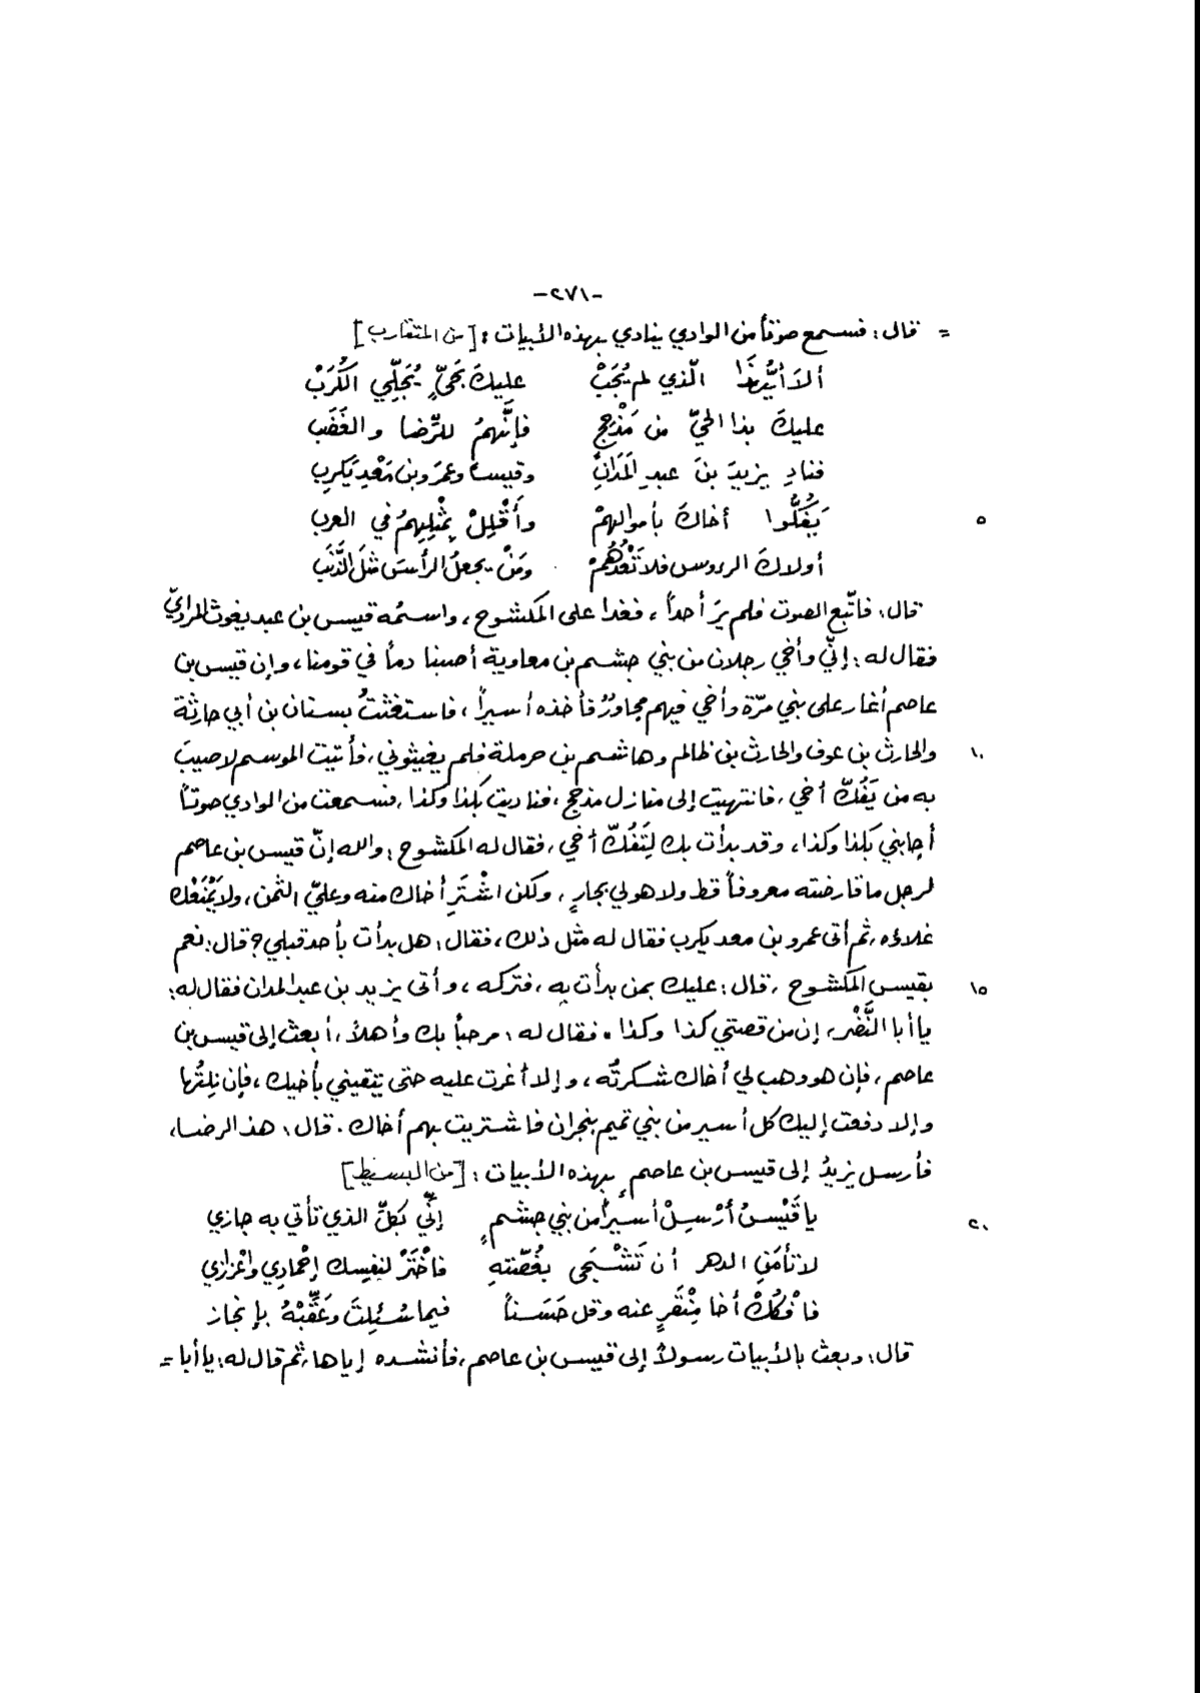 -٢٧١-
= قال: فسمع صوتاً من الوادي ينادي بهذه الأبيات: [من المتقارب]
ألاَ أيُّهَذَا الّذي لم يُجَبْ عليكَ بَحيٍّ يُجَلّي الكُرَبْ
عليكَ بذا الحيّ من مَذْحِجٍ فإنَّهمُ للرِّضا والغَضَب
فنادِ يزيدَ بنَ عبدِ المَدَانِ وقيساً وعمَروبن مَعْدِيَكرِب
٥ يَفُكُّوا أخاكَ بأموالهمْ وأَقْلِلْ بِمْثلِهِمُ في العرب
أولاكَ الرءوس فلا تَعْدُهُمْ ومَنْ يجعلُ الرأسَ مثلَ الذَّنَب
قال: فاتّبع الصوت فلم يرَ أحداً، فغدا على المكشوح، واسمُه قيس بن عبد يغوث المراديّ
فقال له: إنّي وأخي رجلان من بني جشم بن معاوية أصبنا دماً في قومنا، وإن قيس بن
عاصم أغار على بني مرّة وأخي فيهم مجاورٌ فأخذه أسيراً، فاستغثتُ بسنان بن أبي حارثة
١٠ والحارث بن عوف والحارث بن ظالم وهاشم بن حرملة فلم يغيثوني، فأتيت الموسم لاصيبَ
به من يَفُكّ أخي، فانتهيت إلى منازل مذحج، فناديت بكذا وكذا، فسمعت من الوادي صوتاً
أجابني بكذا وكذا، وقد بدأت بك لِتَفُكّ أخي، فقال له المكشوح: والله إنّ قيس بن عاصم
لرجل ما قارضته معروفاً قط ولا هو لي بجارٍ، ولكن اشْتَرِ أخاك منه وعليّ الثمن، ولا يَمْنَعْك
غلاؤه، ثم أتى عمرو بن معد يكرب فقال له مثل ذلك، فقال: هل بدأت بأحد قبلي؟ قال: نعم
١٥ بقيس المكشوح، قال: عليك بمن بدأت به، فتركه، وأتى يزيد بن عبد المدان فقال له:
يا أبا النَّضْر، إن من قصتي كذا وكذا. فقال له: مرحباً بك وأهلاً، أبعث إلى قيس بن
عاصم، فإن هو وهب لي أخاك شكرتُه، وإلا أغرت عليه حتى يتقيني بأخيك، فإن نِلتُها
وإلا دفعت إليك كل أسير من بني تميم بنجران فاشتريت بهم أخاك. قال: هذ الرضا،
فأرسل يزيدُ إلى قيس بن عاصمٍ بهذه الأبيات: [من البسيط]
٢٠ يا قَيْسُ أرْسِلْ أسيراً من بني جشمٍ إنّي بكلّ الذي تأتي به جازي
لا تأمَنِ الدهر أن تَشْجَى بغُصّتهِ فاخْتَرْ لنفِسك إحْمادِي واعْزازي
فافْكُكْ أخا مِنْقَرٍ عنه وقل حَسَناً فيما سُئِلتَ وعَقِّبْهُ بإنجاز
قال: وبعث بالأبيات رسولاً إلى قيس بن عاصم، فأنشده إياها، ثم قال له: يا أبا =